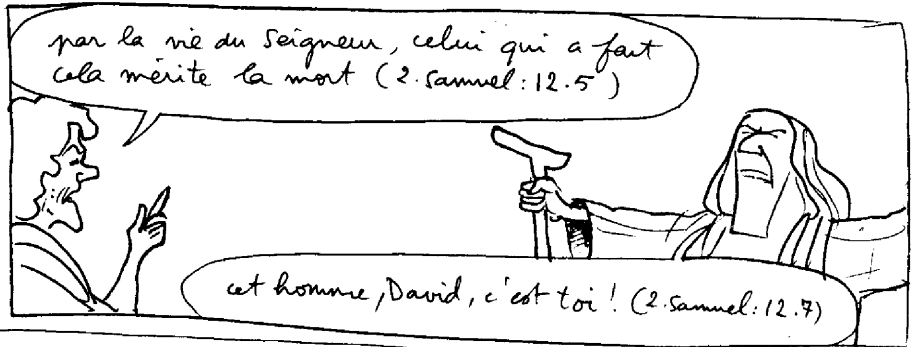 par la vie du Seigneur, celui qui a fait
cela mérite la mort (2.Samuel:12.5)
cet homme, David, c'est toi! (2.Samuel:12.7)